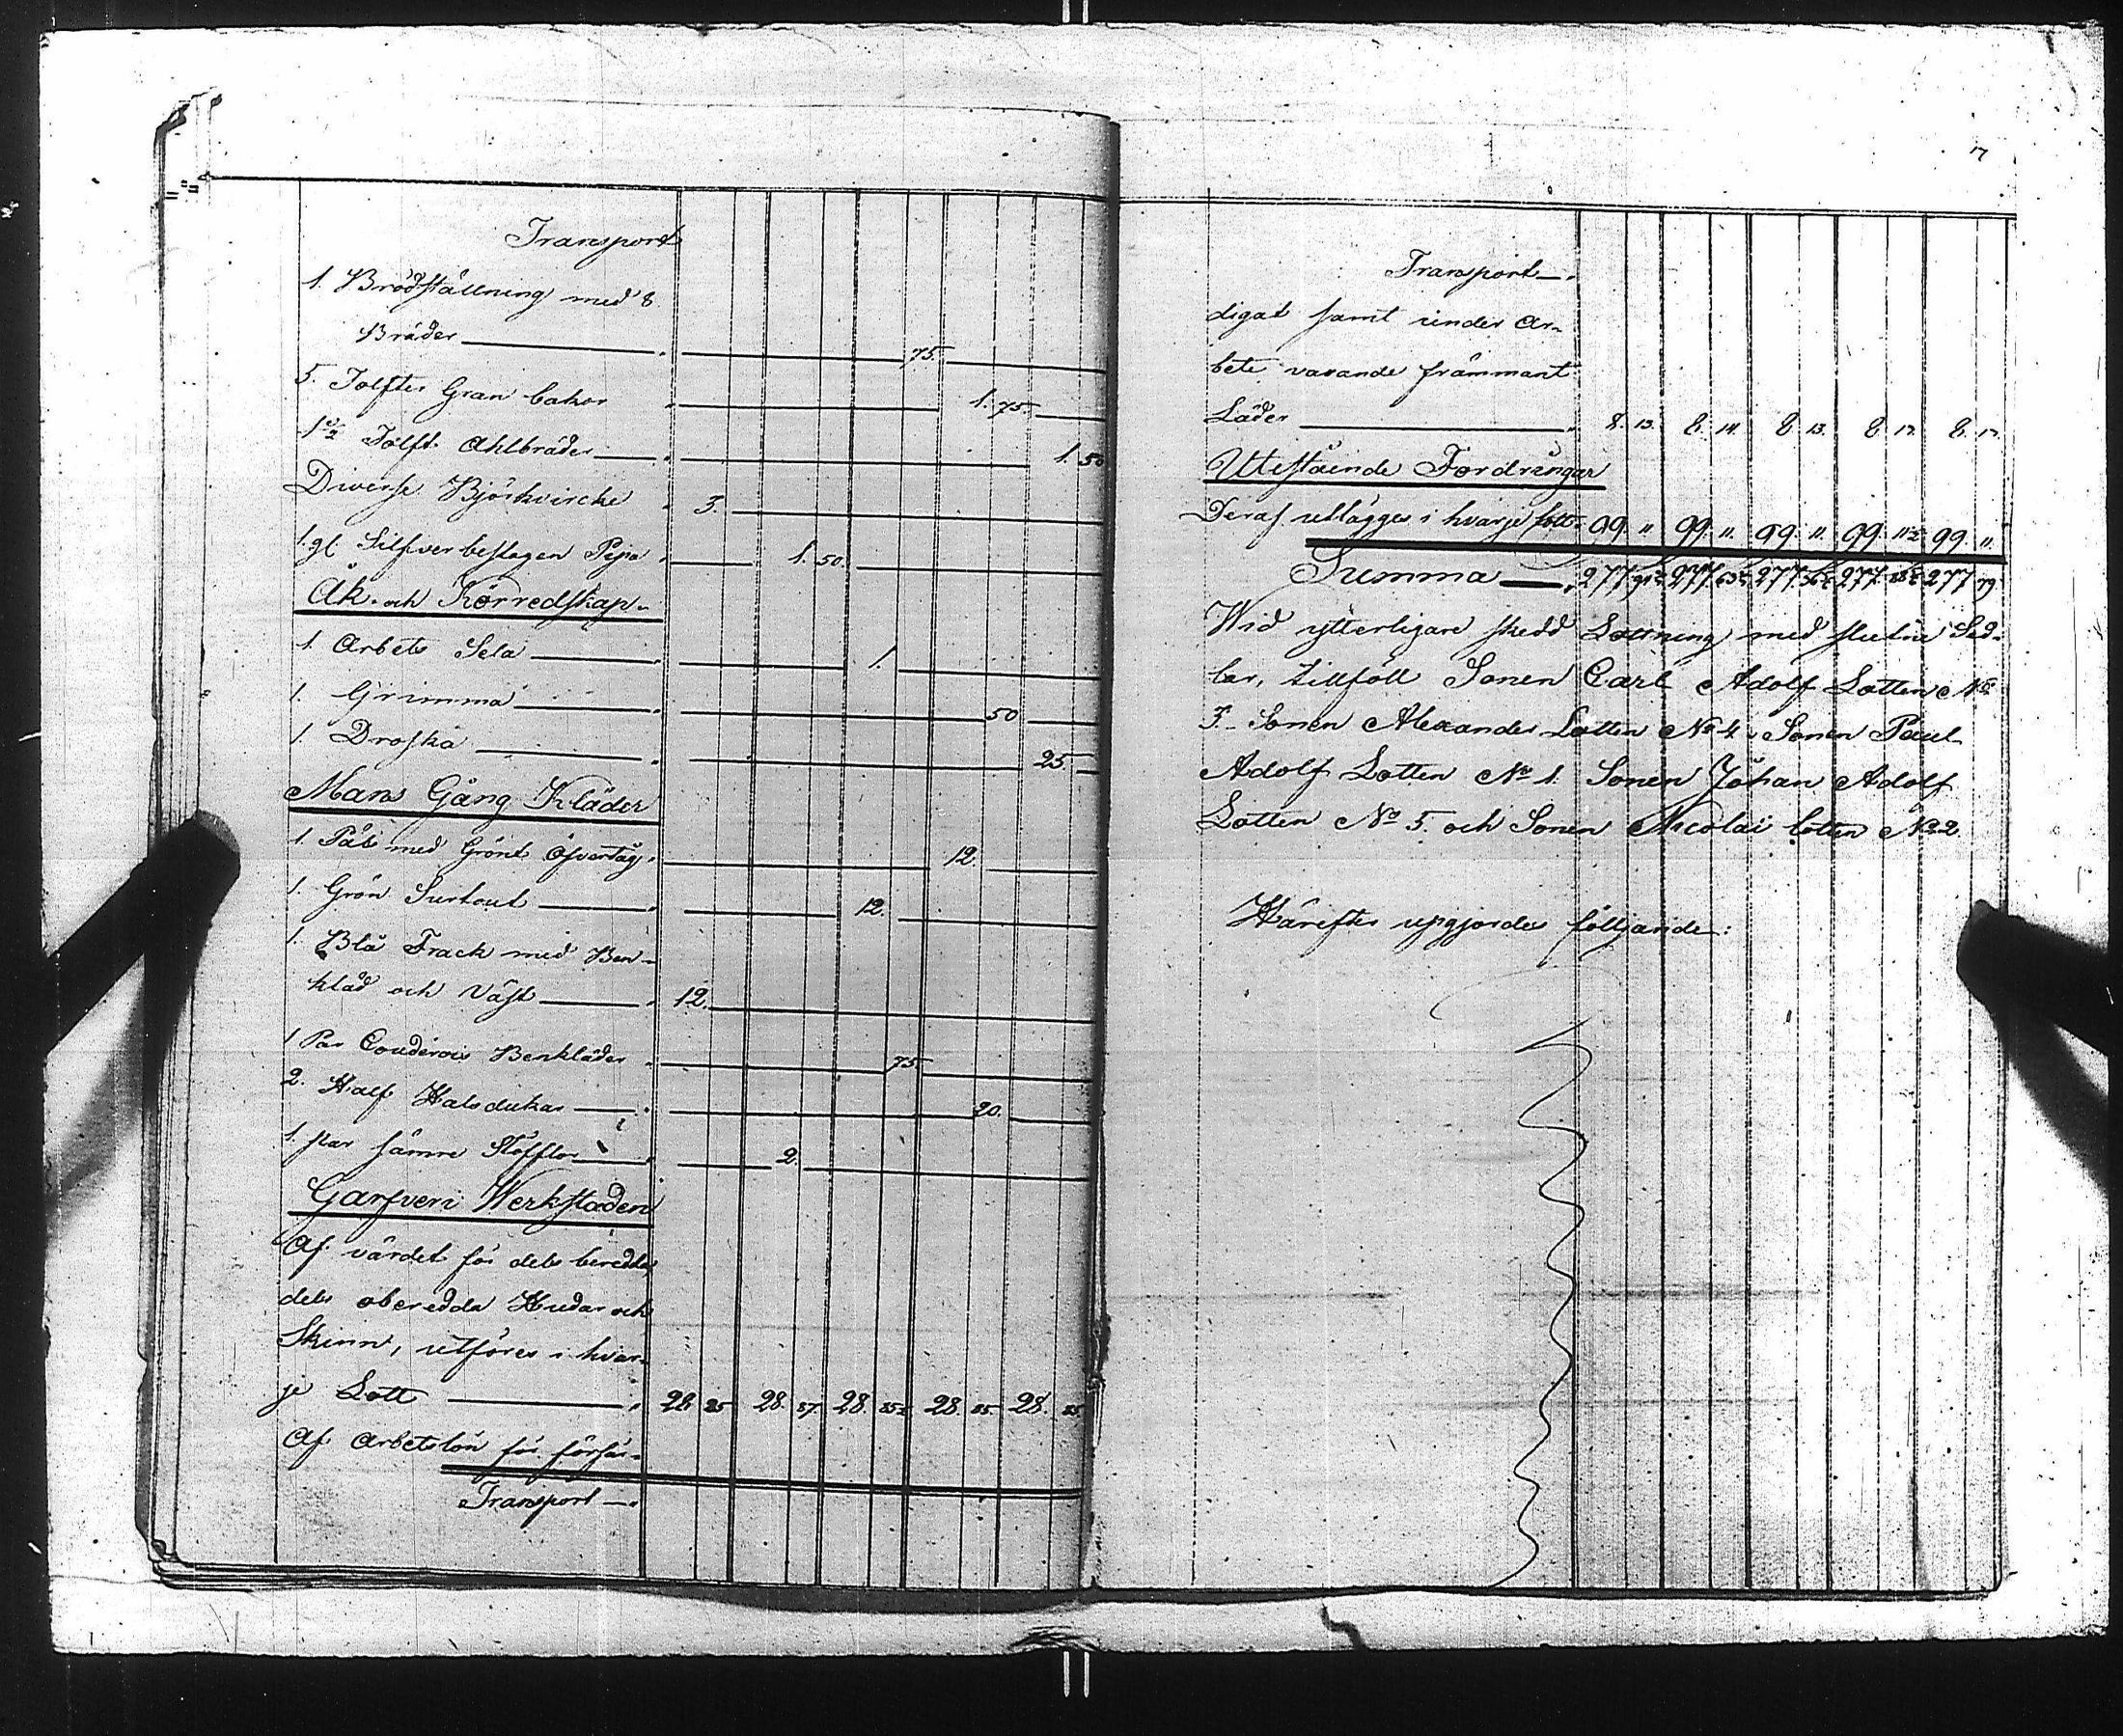 Transport
1. Brödställning med 8.
Bräder 75.
5. Tolfter Gran bakor 1. 75.
1 1/2 Tolft. Ahlbräder 1. 50
Diverse Björkvircke 3.
1. gl. Silfverbeslagen Pipa 1. 50.
Åk- och Körredskap.
1. Arbets Sela 1.
1. Grimma 50
1. Droska 25.
Mans Gång Kläder
1. Päls med Grönt öfvertåg. 12.
1. Grön Surtout 12.
1. Blå Frack med Ben-
kläd och Väst 12.
1 Par Benkläder 75.
2. Half Halsdukar 20.
1. par sämre Stöfflor 2.
Garfveri Werkstaden
Af värdet för dels beredda,
dels oberedda Hudar och
Skinn, utföres i hvar-
je Lott 28. 85 28. 87. 28. 85 1/2 28. 85. 28. 85.
Af Arbetslön för förfär-
Transport
17
Transport
digat samt under Ar-
bete varande främmant
Läder 8. 13. 8. 14. 8 13. 8 12. 8. 12.
Utestående Fordringar
Deraf utlägges i hvarje lott 99. " 99. " 99. " 99. 99. "
Summa 277. 277. 277. 277. 277
Wid ytterligare skedd Lottning med slutna Sed-
lar, tillföll Sonen Carl Adolf Lotten No
3. Sonen Alexander Lotten No 4. Sonen Paul
Adolf Lotten No 1. Sonen Johan Adolf
Lotten No 5. och Sonen Nicolai lotten No 2.
Härefter upgjordes följande: